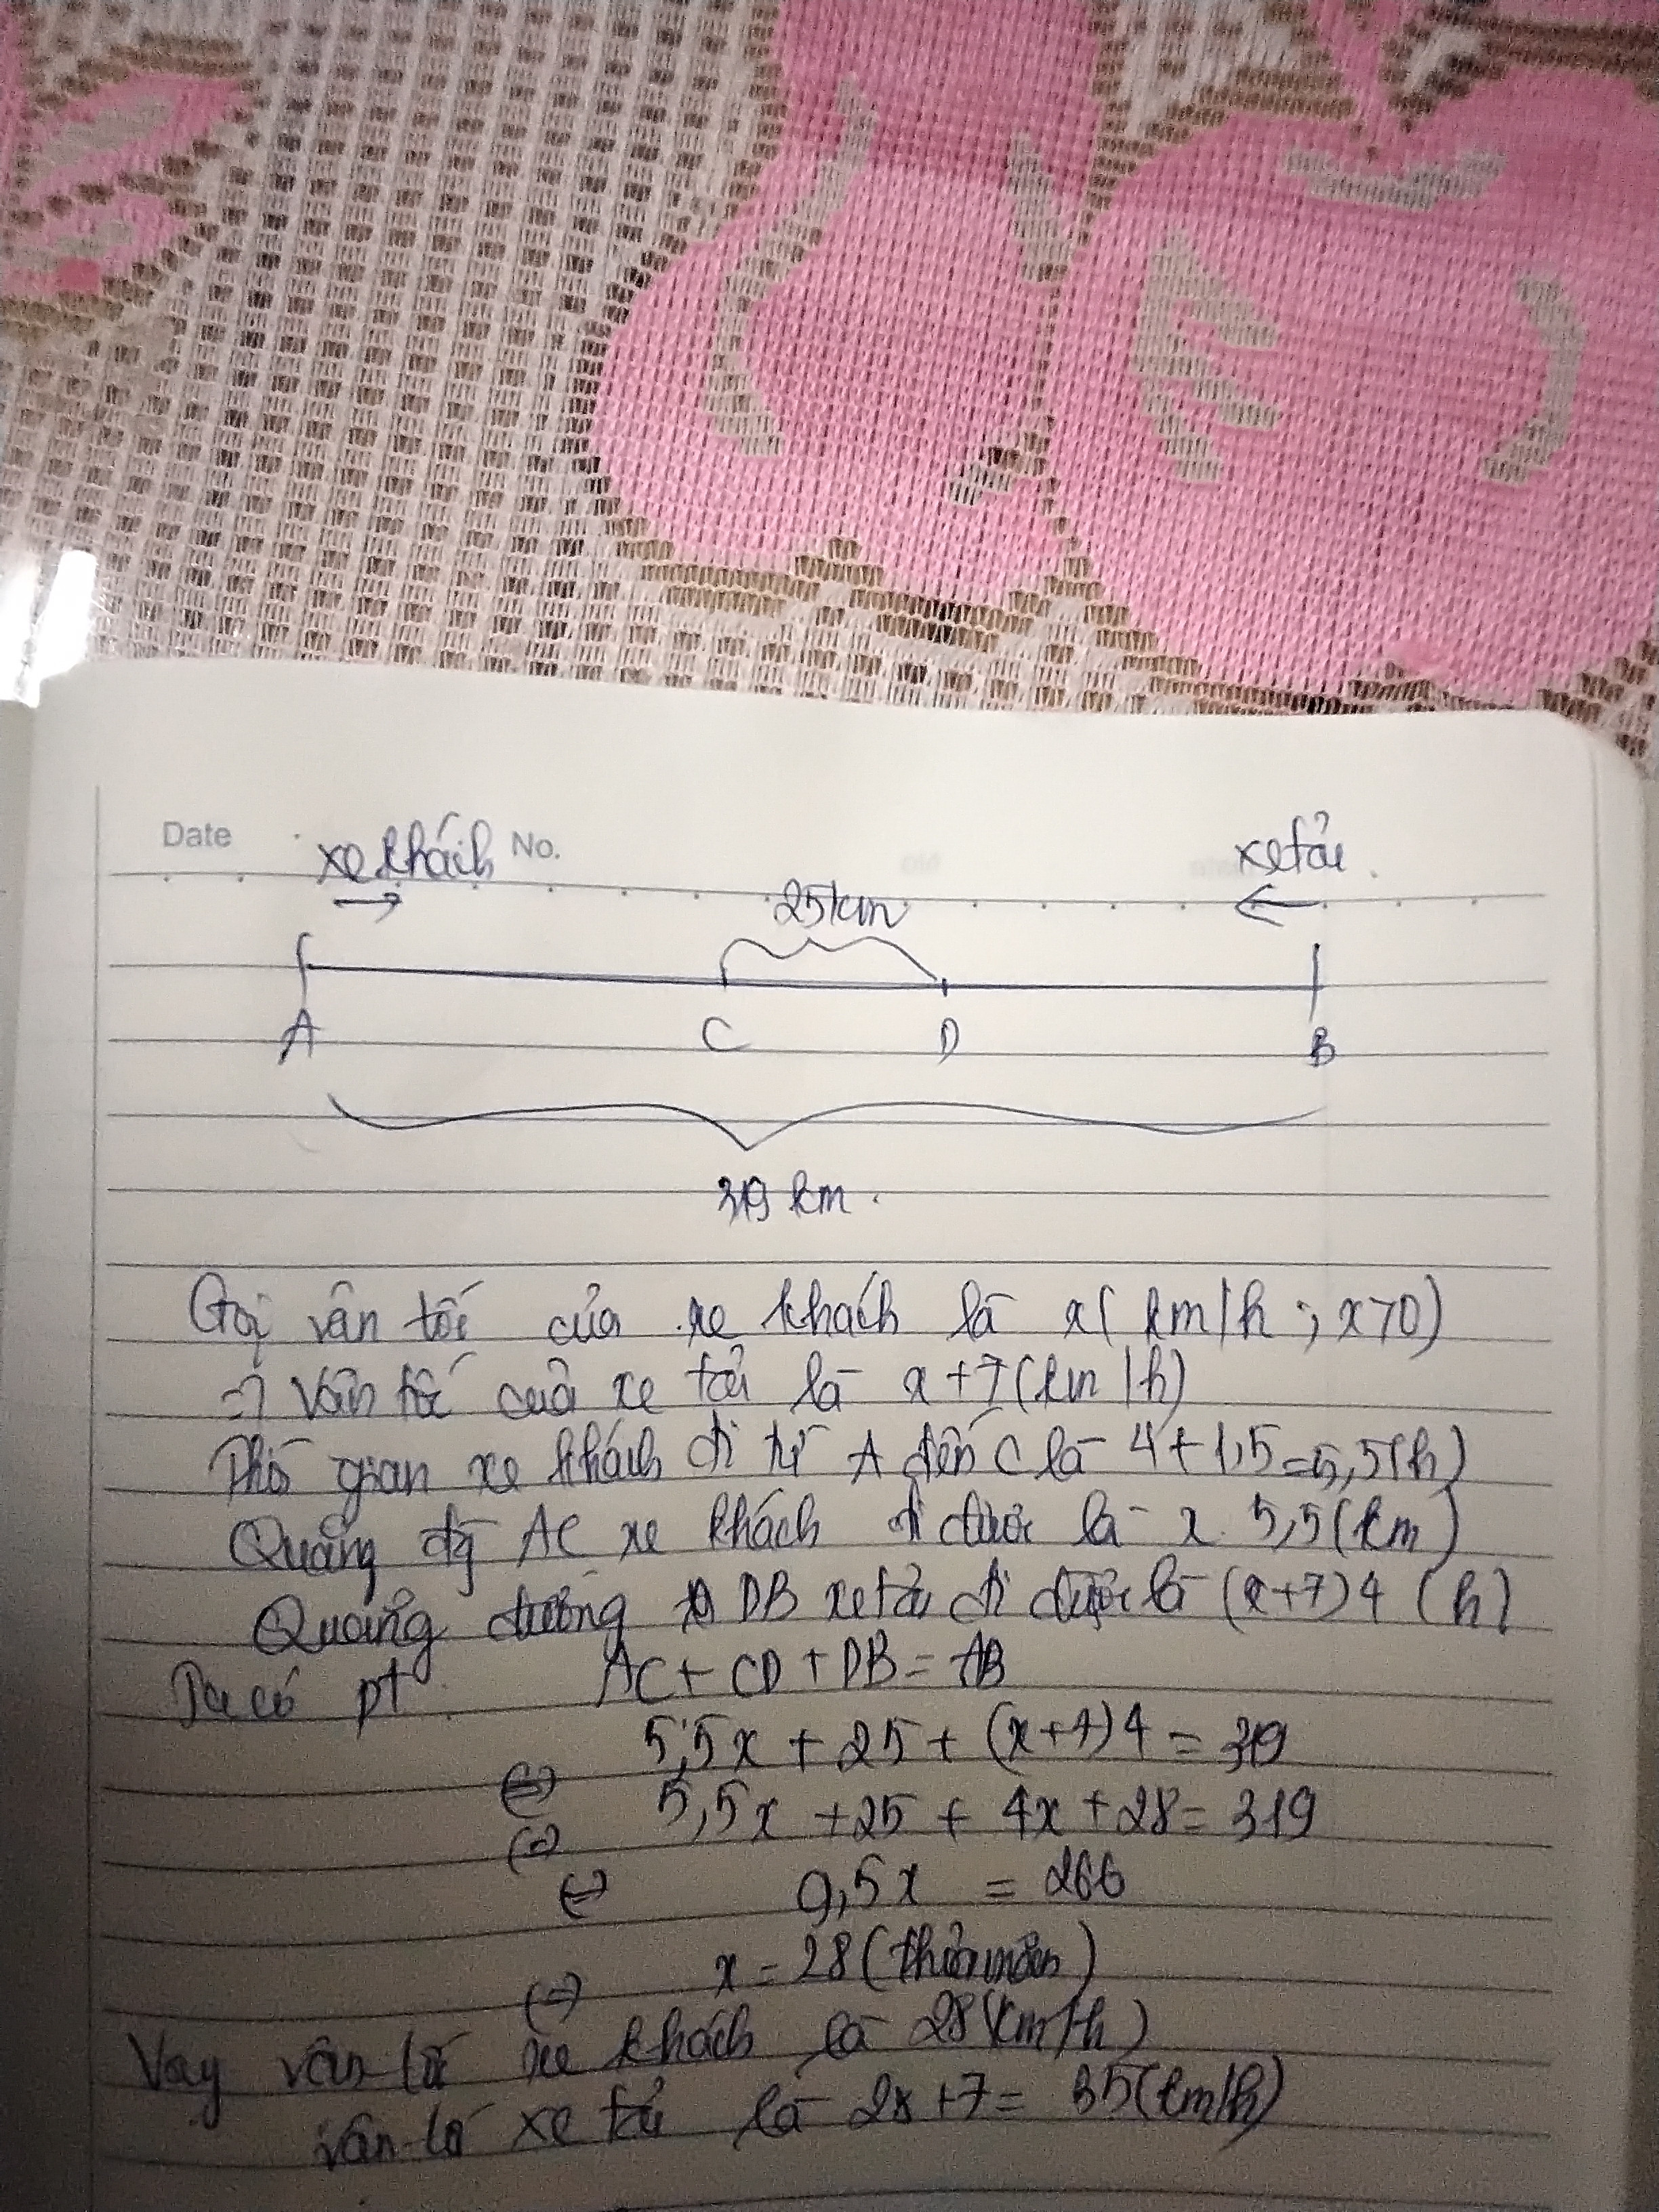 Date No.
xe khách xe tải
25km
A C D B
319 km.
Gọi vân tốc của xe khách là x( km/h ; x>0)
=> Vân tốc của xe tải là x+7(km/h)
Thời gian xe khách đi từ A đến C là 4+1,5=5,5(h)
Quãng đg AC xe khách đi được là x. 5,5(km)
Quãng đường DB xe tải đi được là (x+7)4 (h)
Ta có pt AC+ CD+DB=AB
5,5x + 25+ (x+7)4 = 319
(=) 5,5x +25 + 4x+28= 319
(=)
(=) 9,5x = 266
(=) x = 28(thỏa mãn)
Vay vân tốc xe khách là 28(km/h)
vân tốc xe tải là 28+7= 35(km/h)